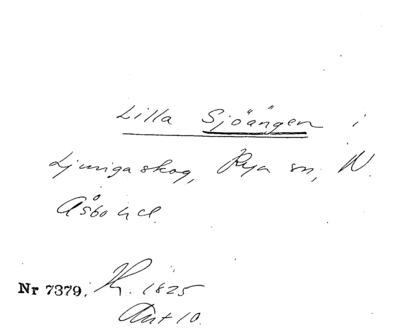 Lilla Sjöängen i
Ljungaskog, Rya sn, N.
Åsbo hd.
Nr 7379. R. 1825
Ant 10.